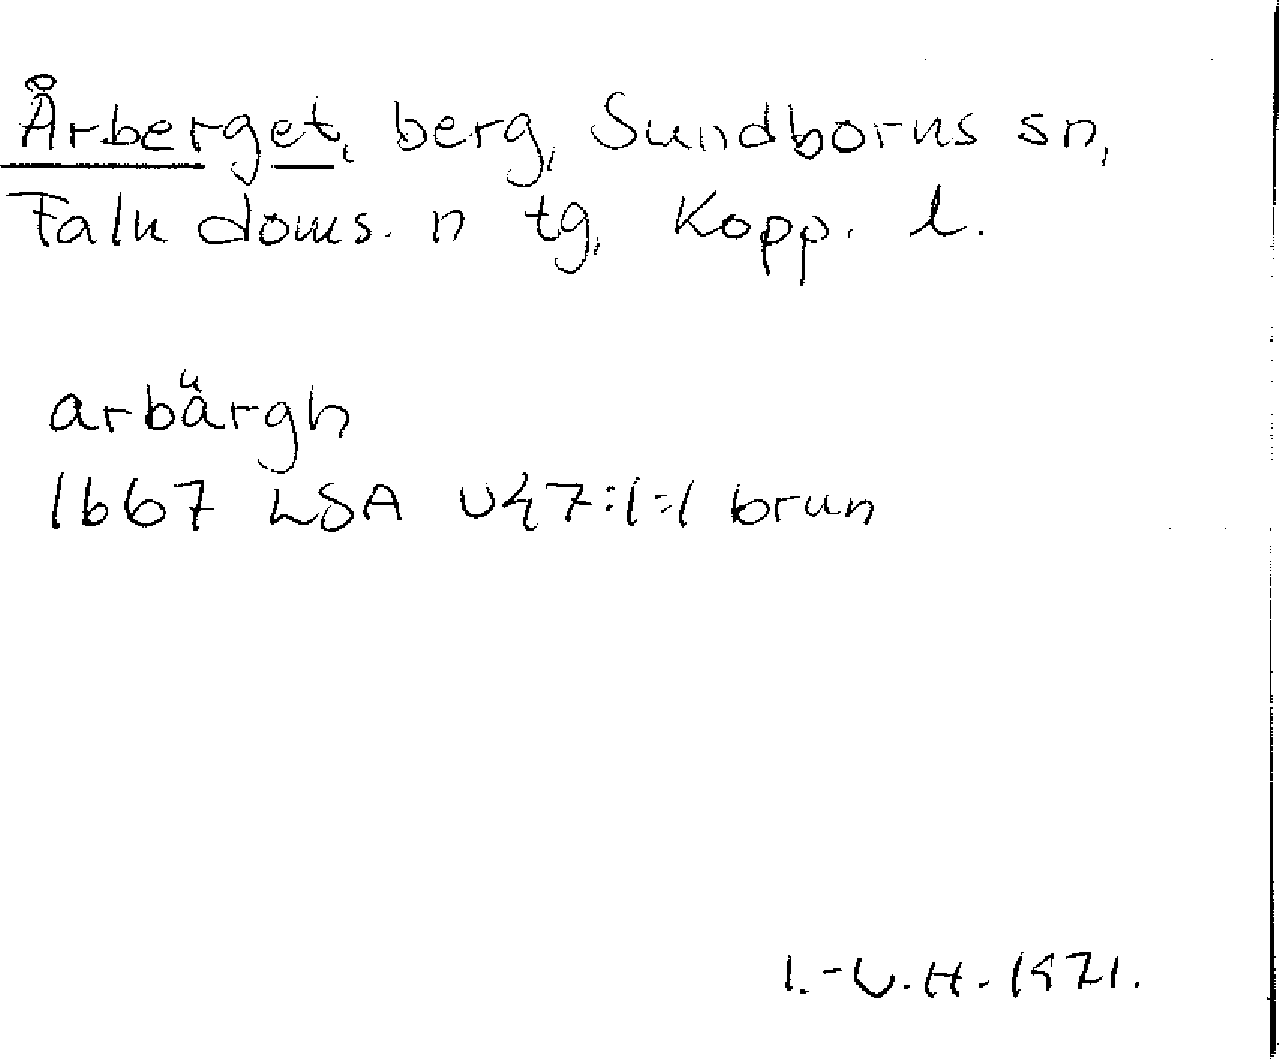 Årberget, berg, Sundborns sn,
Falu doms. n tg, Kopp. l.
arbärgh
1667 LSA U47:1:1 brun
I.-U.H. 1971.